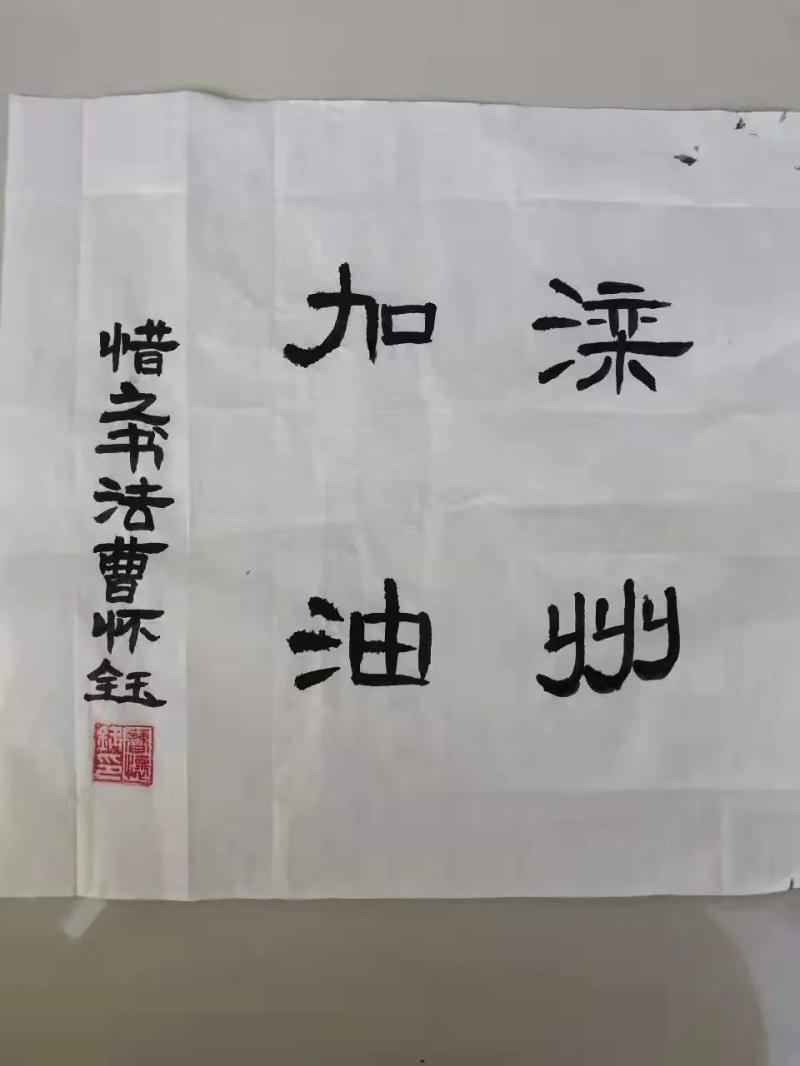 滦州
加油
惜之书法曹怀钰
曹怀钰印